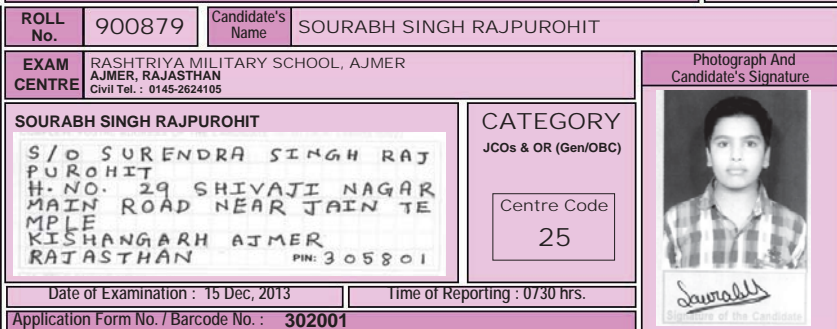 ROLL No.
900879
Candidate's Name
SOURABH SINGH RAJPUROHIT
EXAM CENTRE
RASHTRIYA MILITARY SCHOOL, AJMER
AJMER, RAJASTHAN
Civil Tel. : 0145-2624105
Photograph And
Candidate's Signature
SOURABH SINGH RAJPUROHIT
S/O SURENDRA SINGH RAJ
PUROHIT
H. NO. 29 SHIVAJI NAGAR
MAIN ROAD NEAR JAIN TE
MPLE
KISHANGARH AJMER
RAJASTHAN PIN: 305801
CATEGORY
JCOs & OR (Gen/OBC)
Centre Code
25
Saurabh
Signature of the Candidate
Date of Examination : 15 Dec, 2013
Time of Reporting : 0730 hrs.
Application Form No. / Barcode No. : 302001